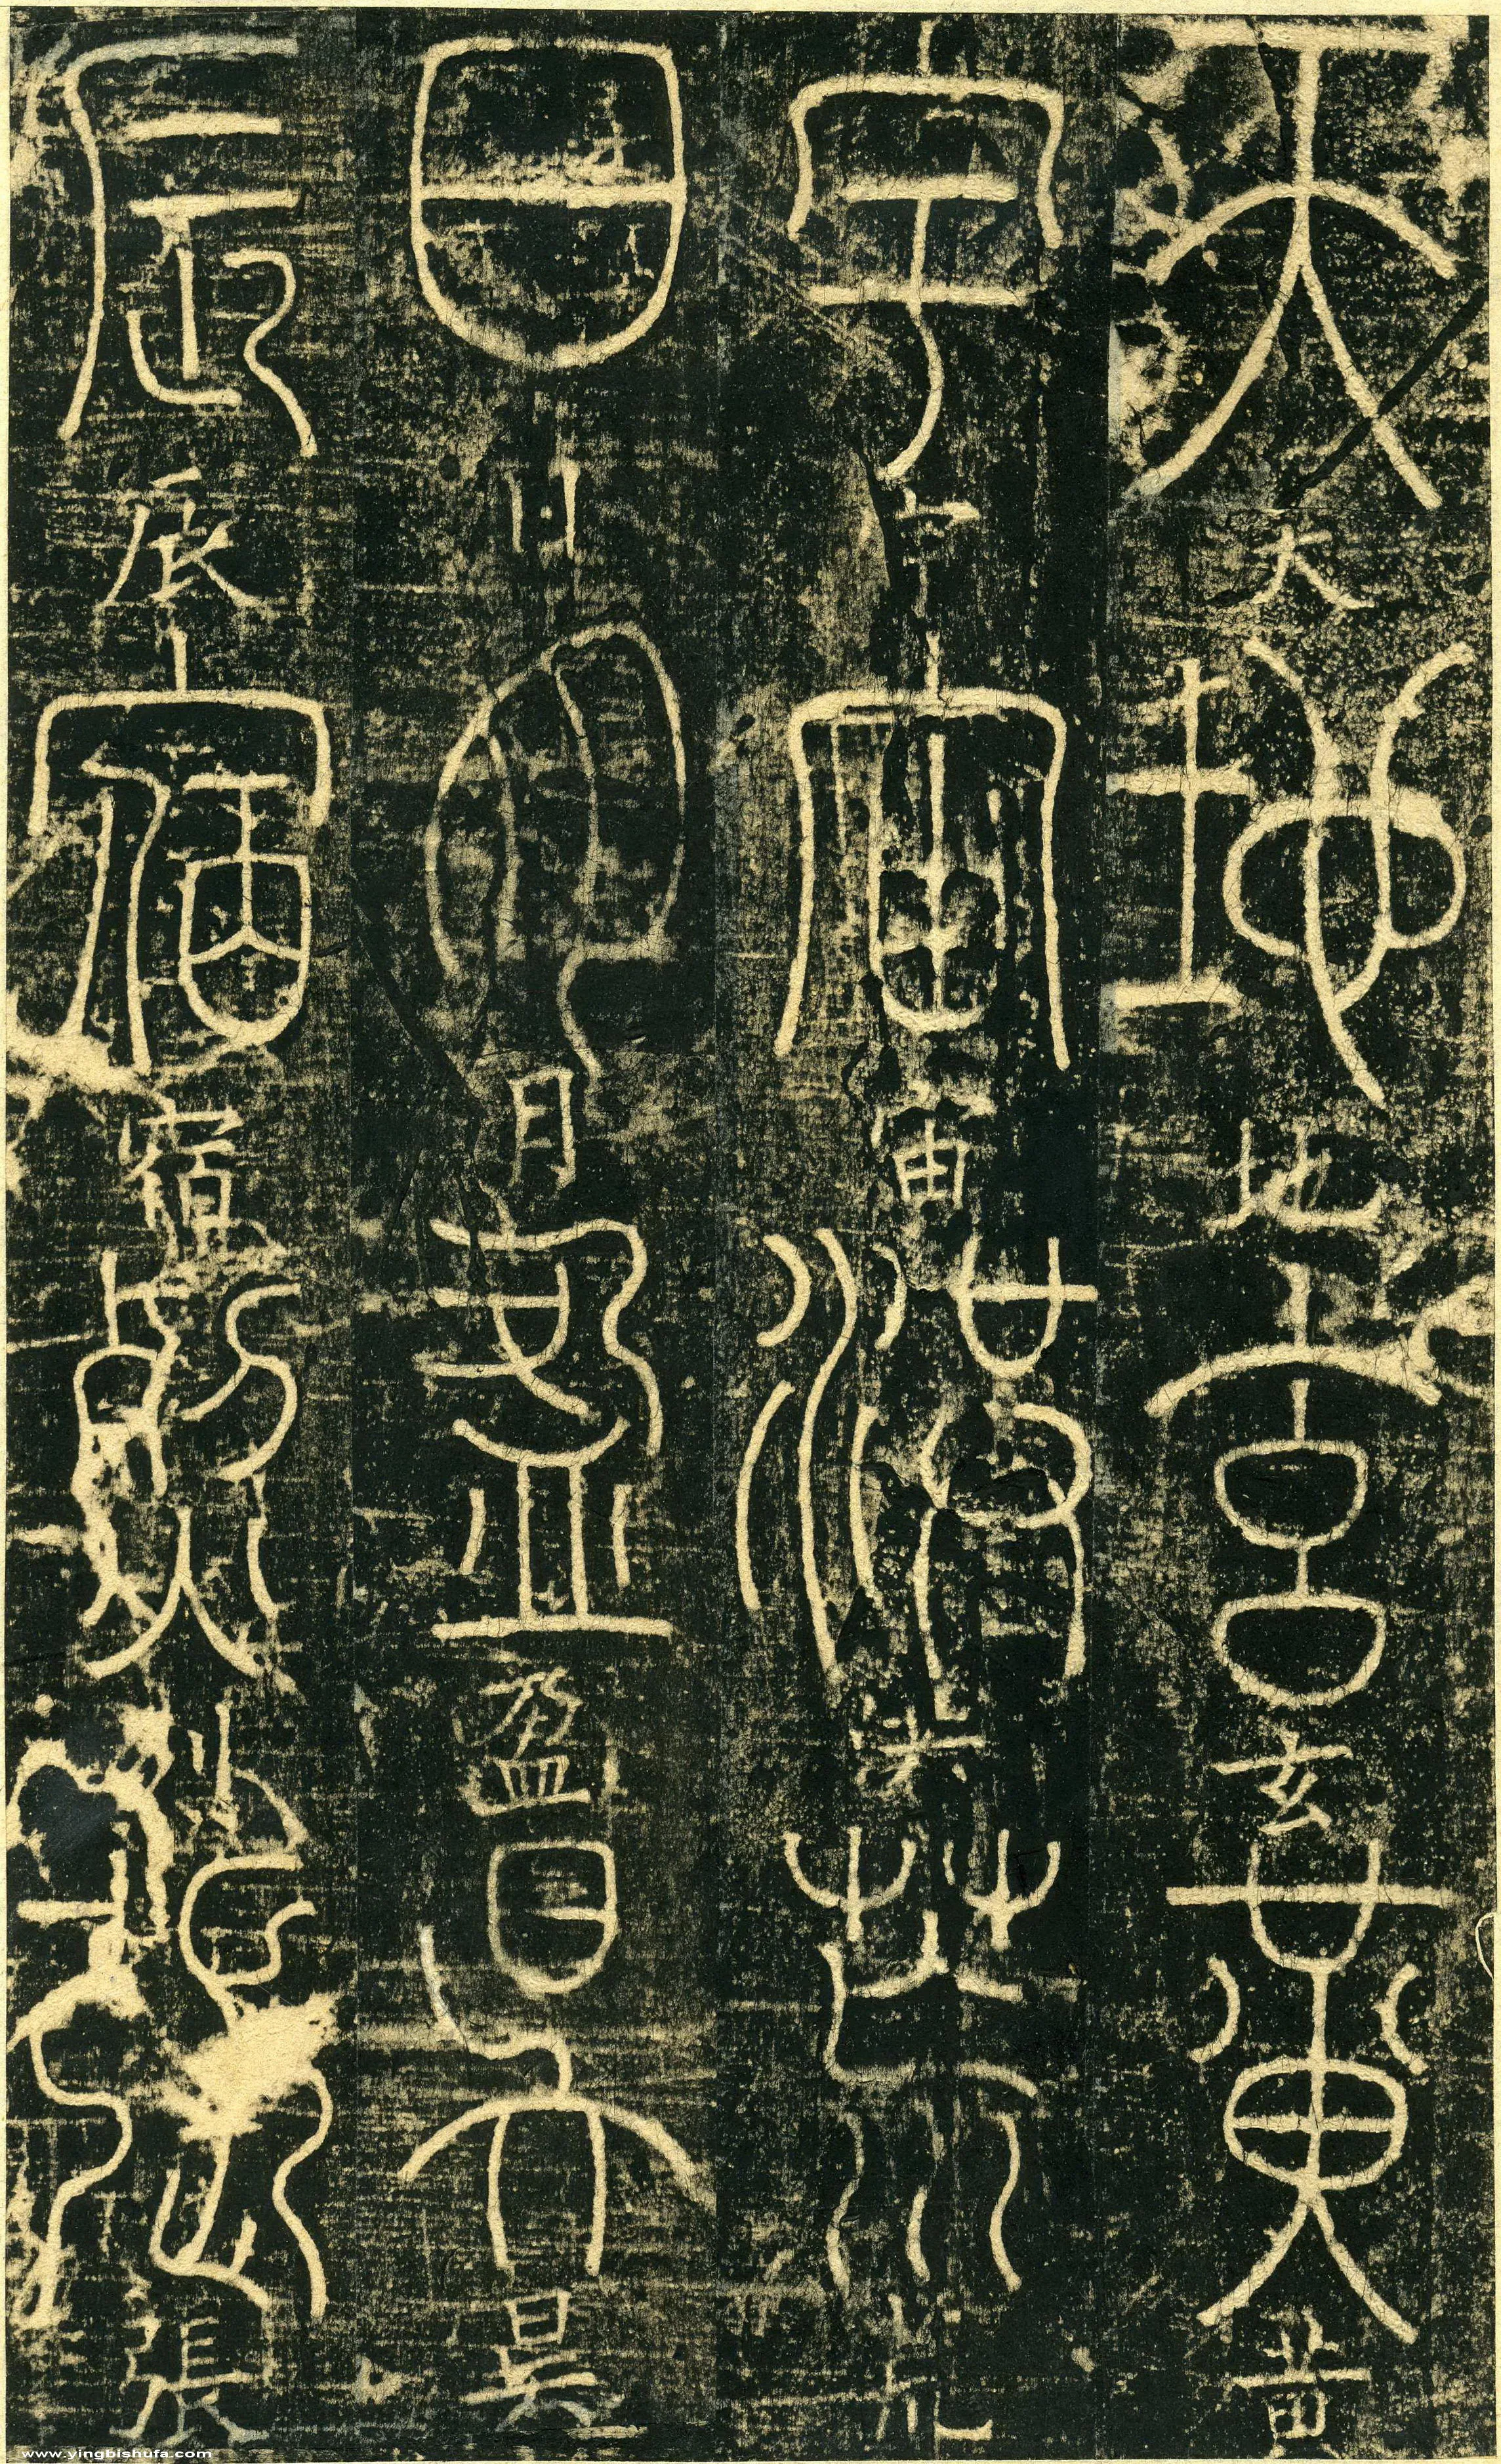 天天地地玄玄黃黃
宇宇宙宙洪洪荒荒
日日月月盈盈昃昃
辰辰宿宿列列張張
www.yingbishufa.com